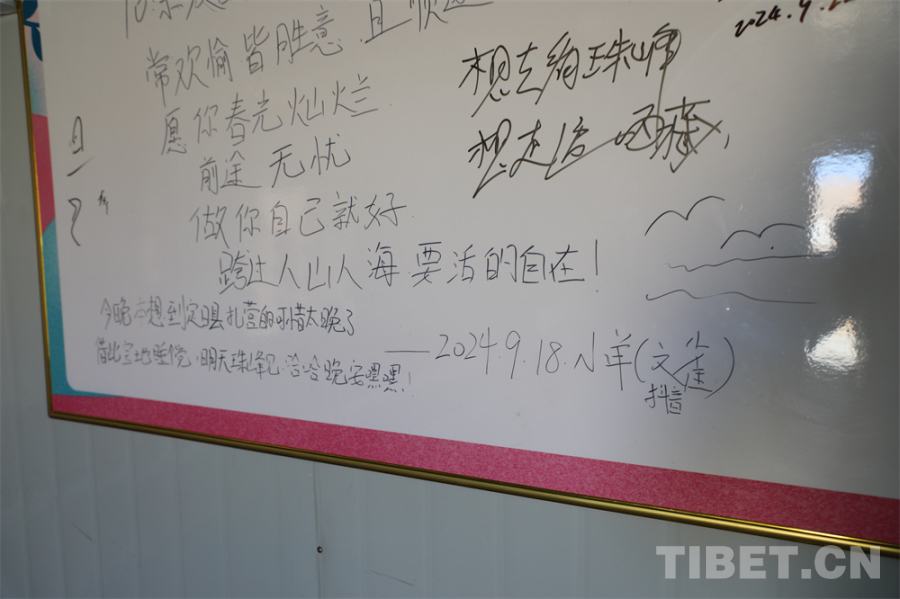 常欢愉皆胜意 且顺遂
愿你春光灿烂
前途无忧
做你自己就好
跨过人山人海 要活的自在!
今晚本想到定日县扎营的可惜太晚了
借此宝地睡觉,明天珠峰见,哈哈晚安嘿嘿!
——2024.9.18.小羊(文华)
抖音
2024.9.
想去绹珠峰
想走这西藏,
TIBET.CN